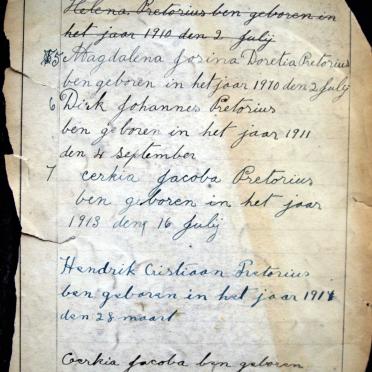 Helena Pretorius ben geboren in
het jaar 1910 den 2 July
5 Magdalena Josina Doretia Pretorius
ben geboren in het jaar 1910 den 2 July
6 Dirk Johannes Pretorius
ben geboren in het jaar 1911
den 4 September
7 Cerkia Jacoba Pretorius
ben geboren in het jaar
1913 den 16 Julij
Hendrik Cristiaan Pretorius
ben geboren in het jaar
den 28 maart
Cerkia Jacoba ben geboren